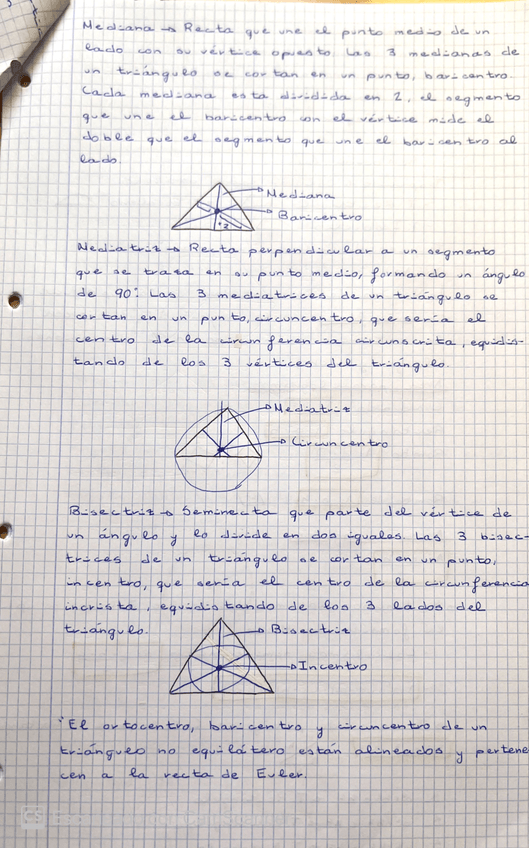 Mediana → Recta que une el punto medio de un
lado con su vértice opuesto. Las 3 medianas de
un triángulo se cortan en un punto, baricentro.
Cada mediana esta dividida en 2, el segmento
que une el baricentro con el vértice mide el
doble que el segmento que une el baricentro al
lado.
Mediana
Baricentro
Mediatriz → Recta perpendicular a un segmento
que se traza en su punto medio, formando un ángulo
de 90°. Las 3 mediatrices de un triángulo se
cortan en un punto, circuncentro, que sería el
centro de la circunferencia circunscrita, equidis-
tando de los 3 vértices del triángulo.
Mediatriz
Circuncentro
Bisectriz → Semirrecta que parte del vértice de
un ángulo y lo divide en dos iguales. Las 3 bisec-
trices de un triángulo se cortan en un punto,
incentro, que sería el centro de la circunferencia
incrista, equidistando de los 3 lados del
triángulo.
Bisectriz
Incentro
*El ortocentro, baricentro y circuncentro de un
triángulo no equilátero están alineados y pertene
cen a la recta de Euler.
CS